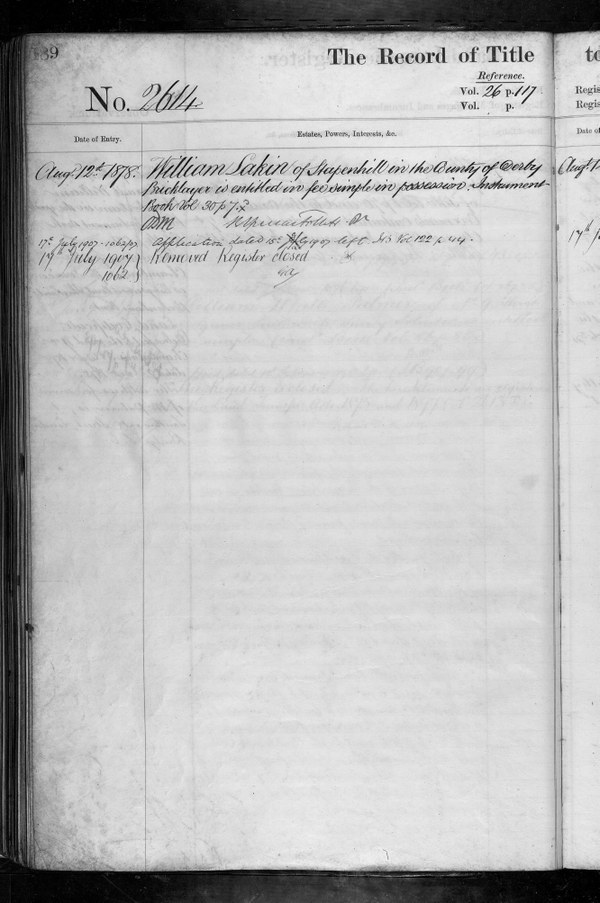 39
The Record of Title
Reference.
No. 2614
Vol. 26 p. 117
Vol. p.
Date of Entry.
Estates, Powers, Interests, &c.
Augt. 12th 1878.
William Lakin of Stapenhill in the County of Derby
Bricklayer is entitled in fee simple in possession. Instrument
Book Vol 30 p 7
17th July 1907 · 1062/07
Application dated 15th July 1907 left Vol 122 p 44.
17th July 1907
1062
Removed Register closed
to
Regis
Regis
Date of
Aug
17th J